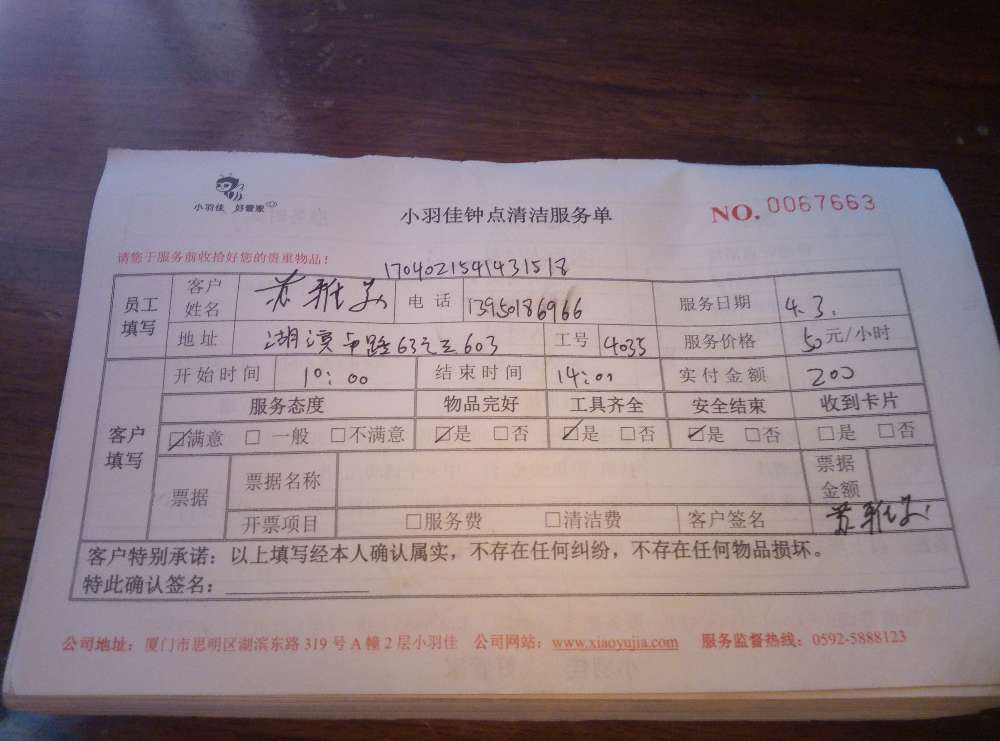 小羽佳 好管家
小羽佳钟点清洁服务单
NO. 0067663
请您于服务前收拾好您的贵重物品!
1704021541431518
员工填写
客户姓名 苏雅 电话 13950186966 服务日期 4.3.
地址 湖滨 路63之 603 工号 4035 服务价格 50元/小时
客户填写
开始时间 10:00 结束时间 14:00 实付金额 200
服务态度 物品完好 工具齐全 安全结束 收到卡片
☑满意 □ 一般 □不满意 ☑是 □否 ☑是 □否 ☑是 □否 □是 □否
票据 票据名称 票据金额
开票项目 □服务费 □清洁费 客户签名 苏雅
客户特别承诺:以上填写经本人确认属实,不存在任何纠纷,不存在任何物品损坏。
特此确认签名:
公司地址:厦门市思明区湖滨东路 319 号 A 幢 2 层小羽佳 公司网站:www.xiaoyujia.com 服务监督热线:0592-5888123